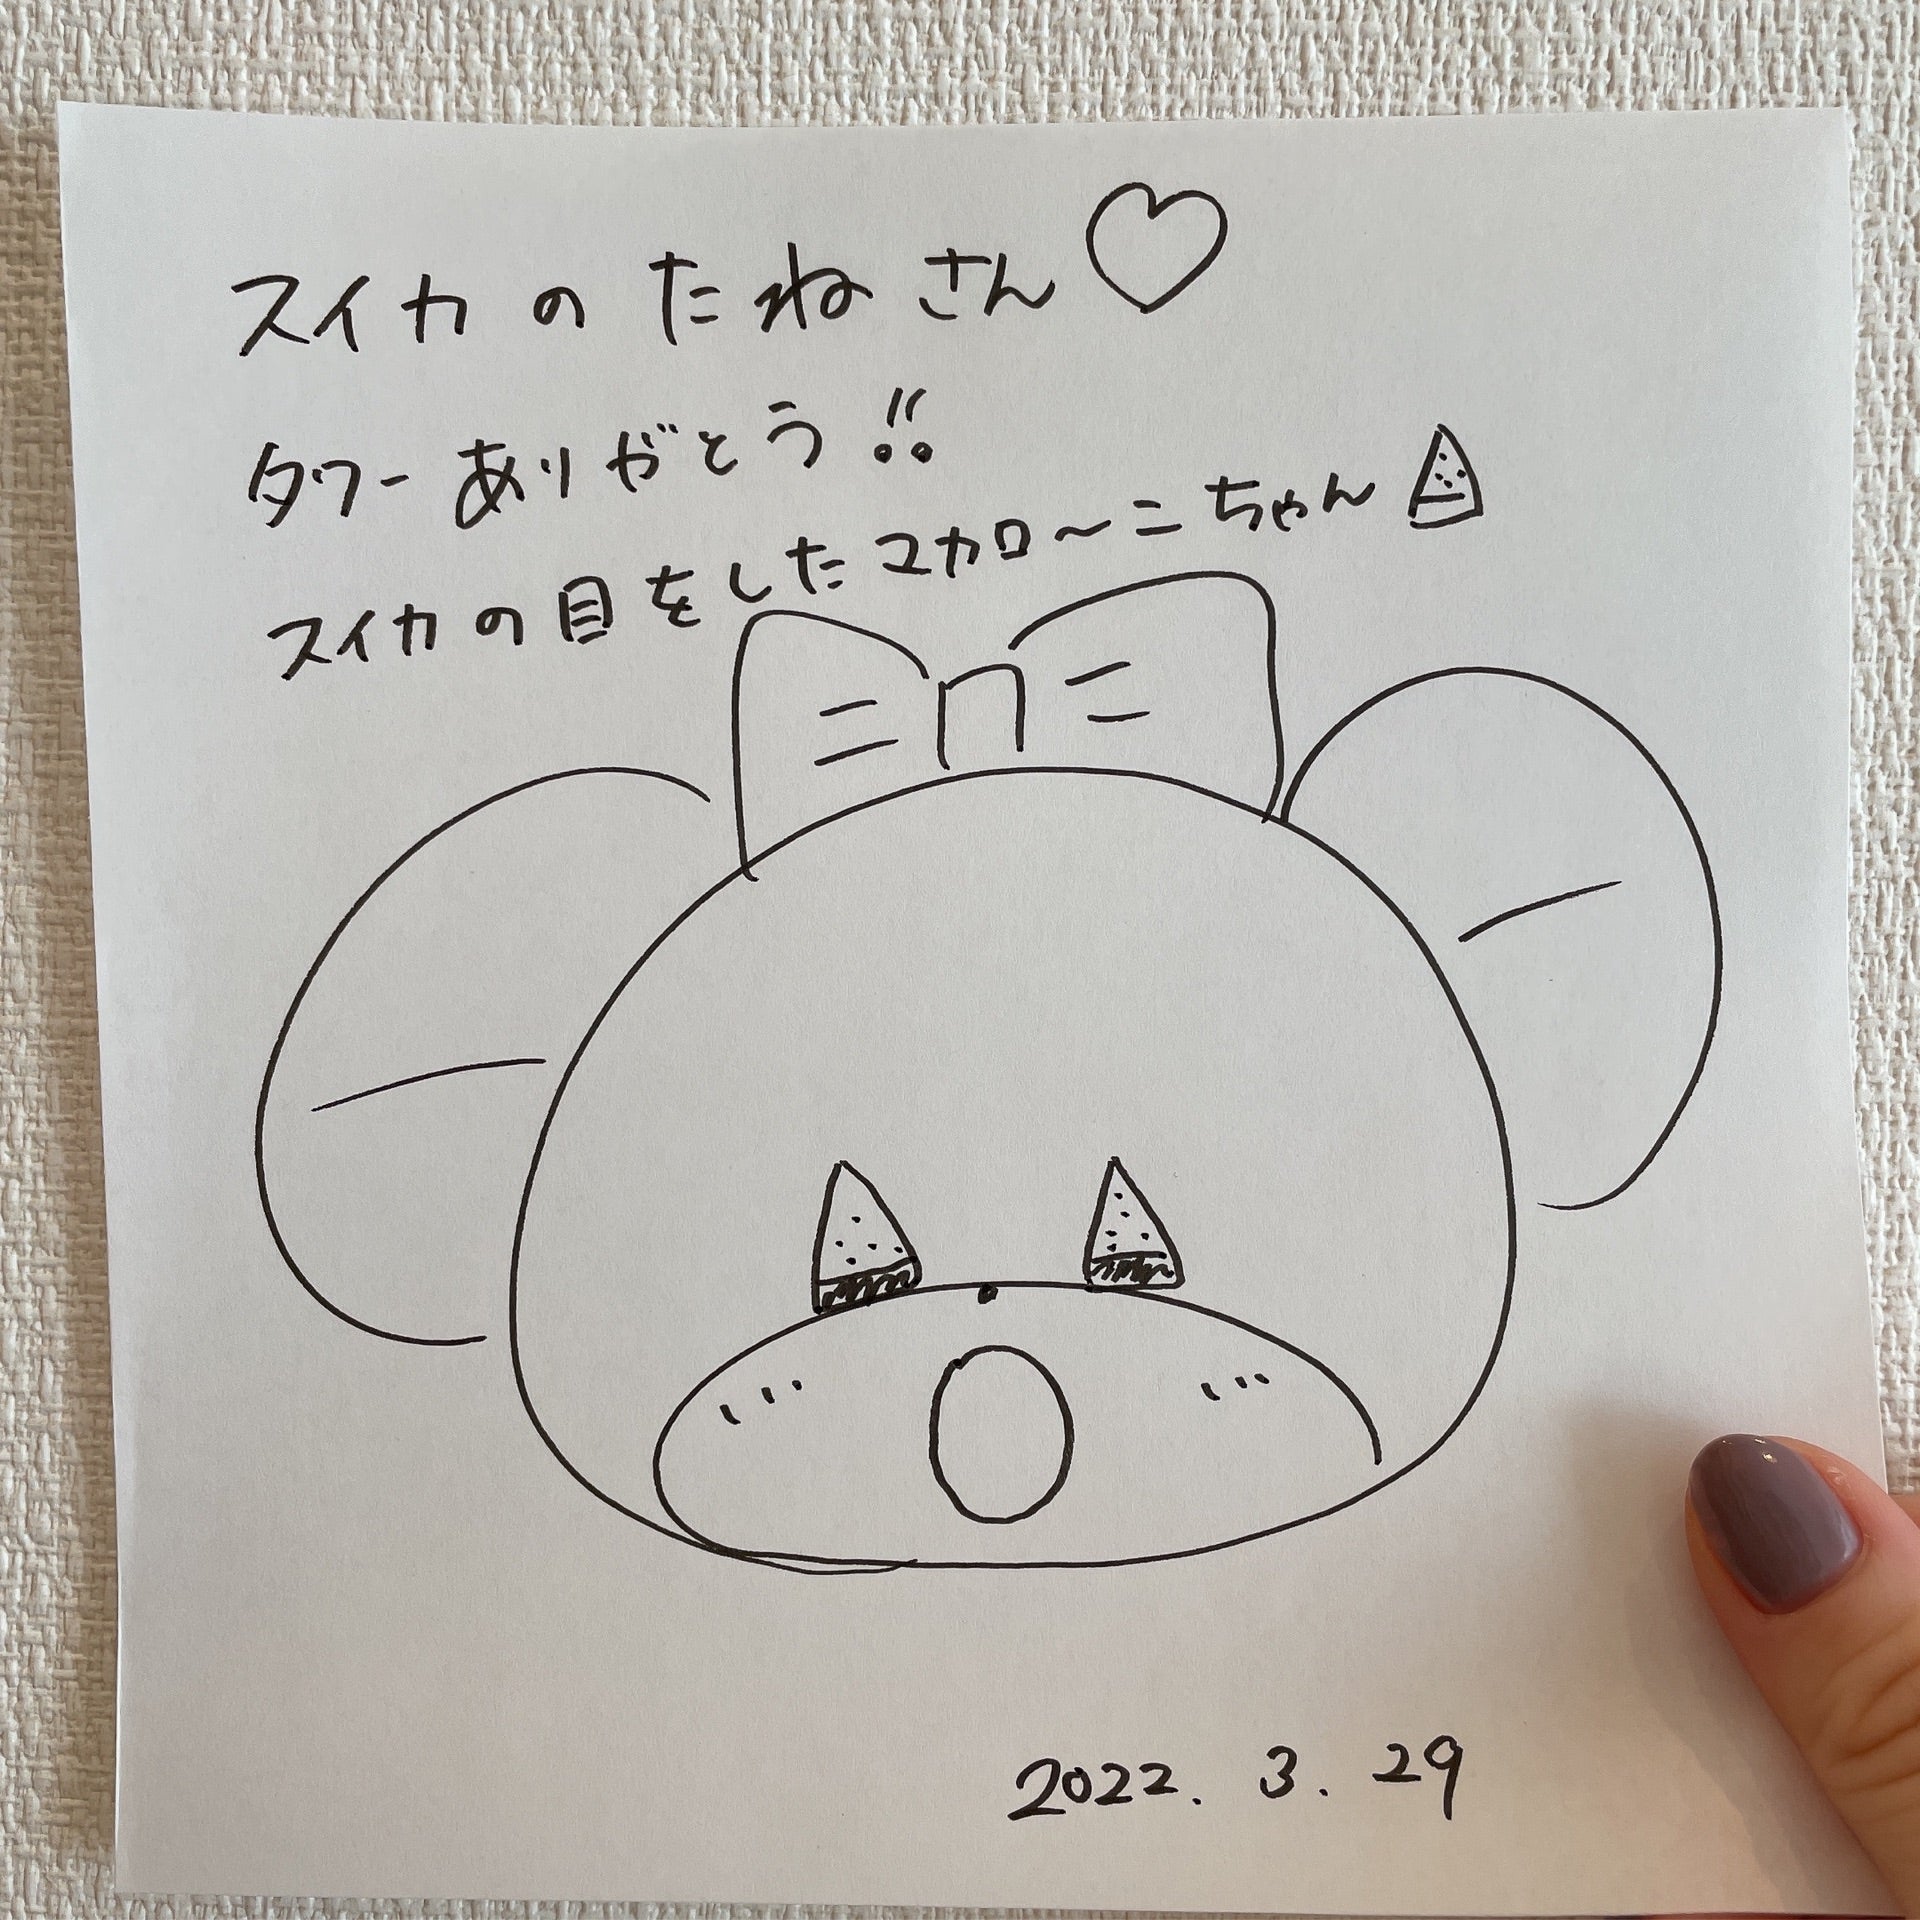 スイカのたねさん♡
タワーありがとう!!
スイカの目をしたマカロ〜ニちゃん
2022. 3. 29